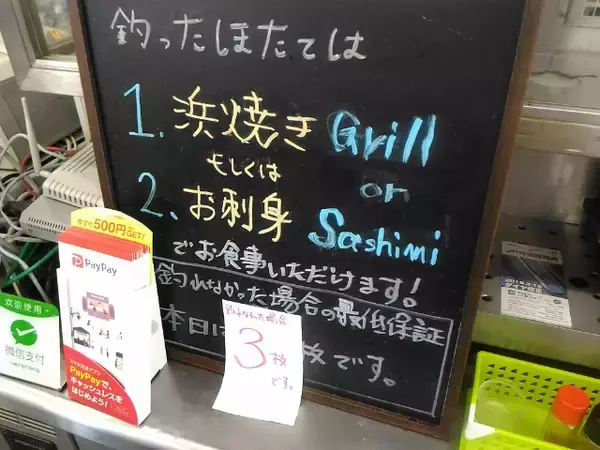 釣ったほたては
1. 浜焼き Grill
もしくは or
2. お刺身 Sashimi
でお食事いただけます!
釣れなかった場合の最低保証
本日は
枚です。
場合
3枚
です。
今すぐ500円GET!
PayPay
PayPayで、
キャッシュレスを
はじめよう!
欢迎使用
微信支付